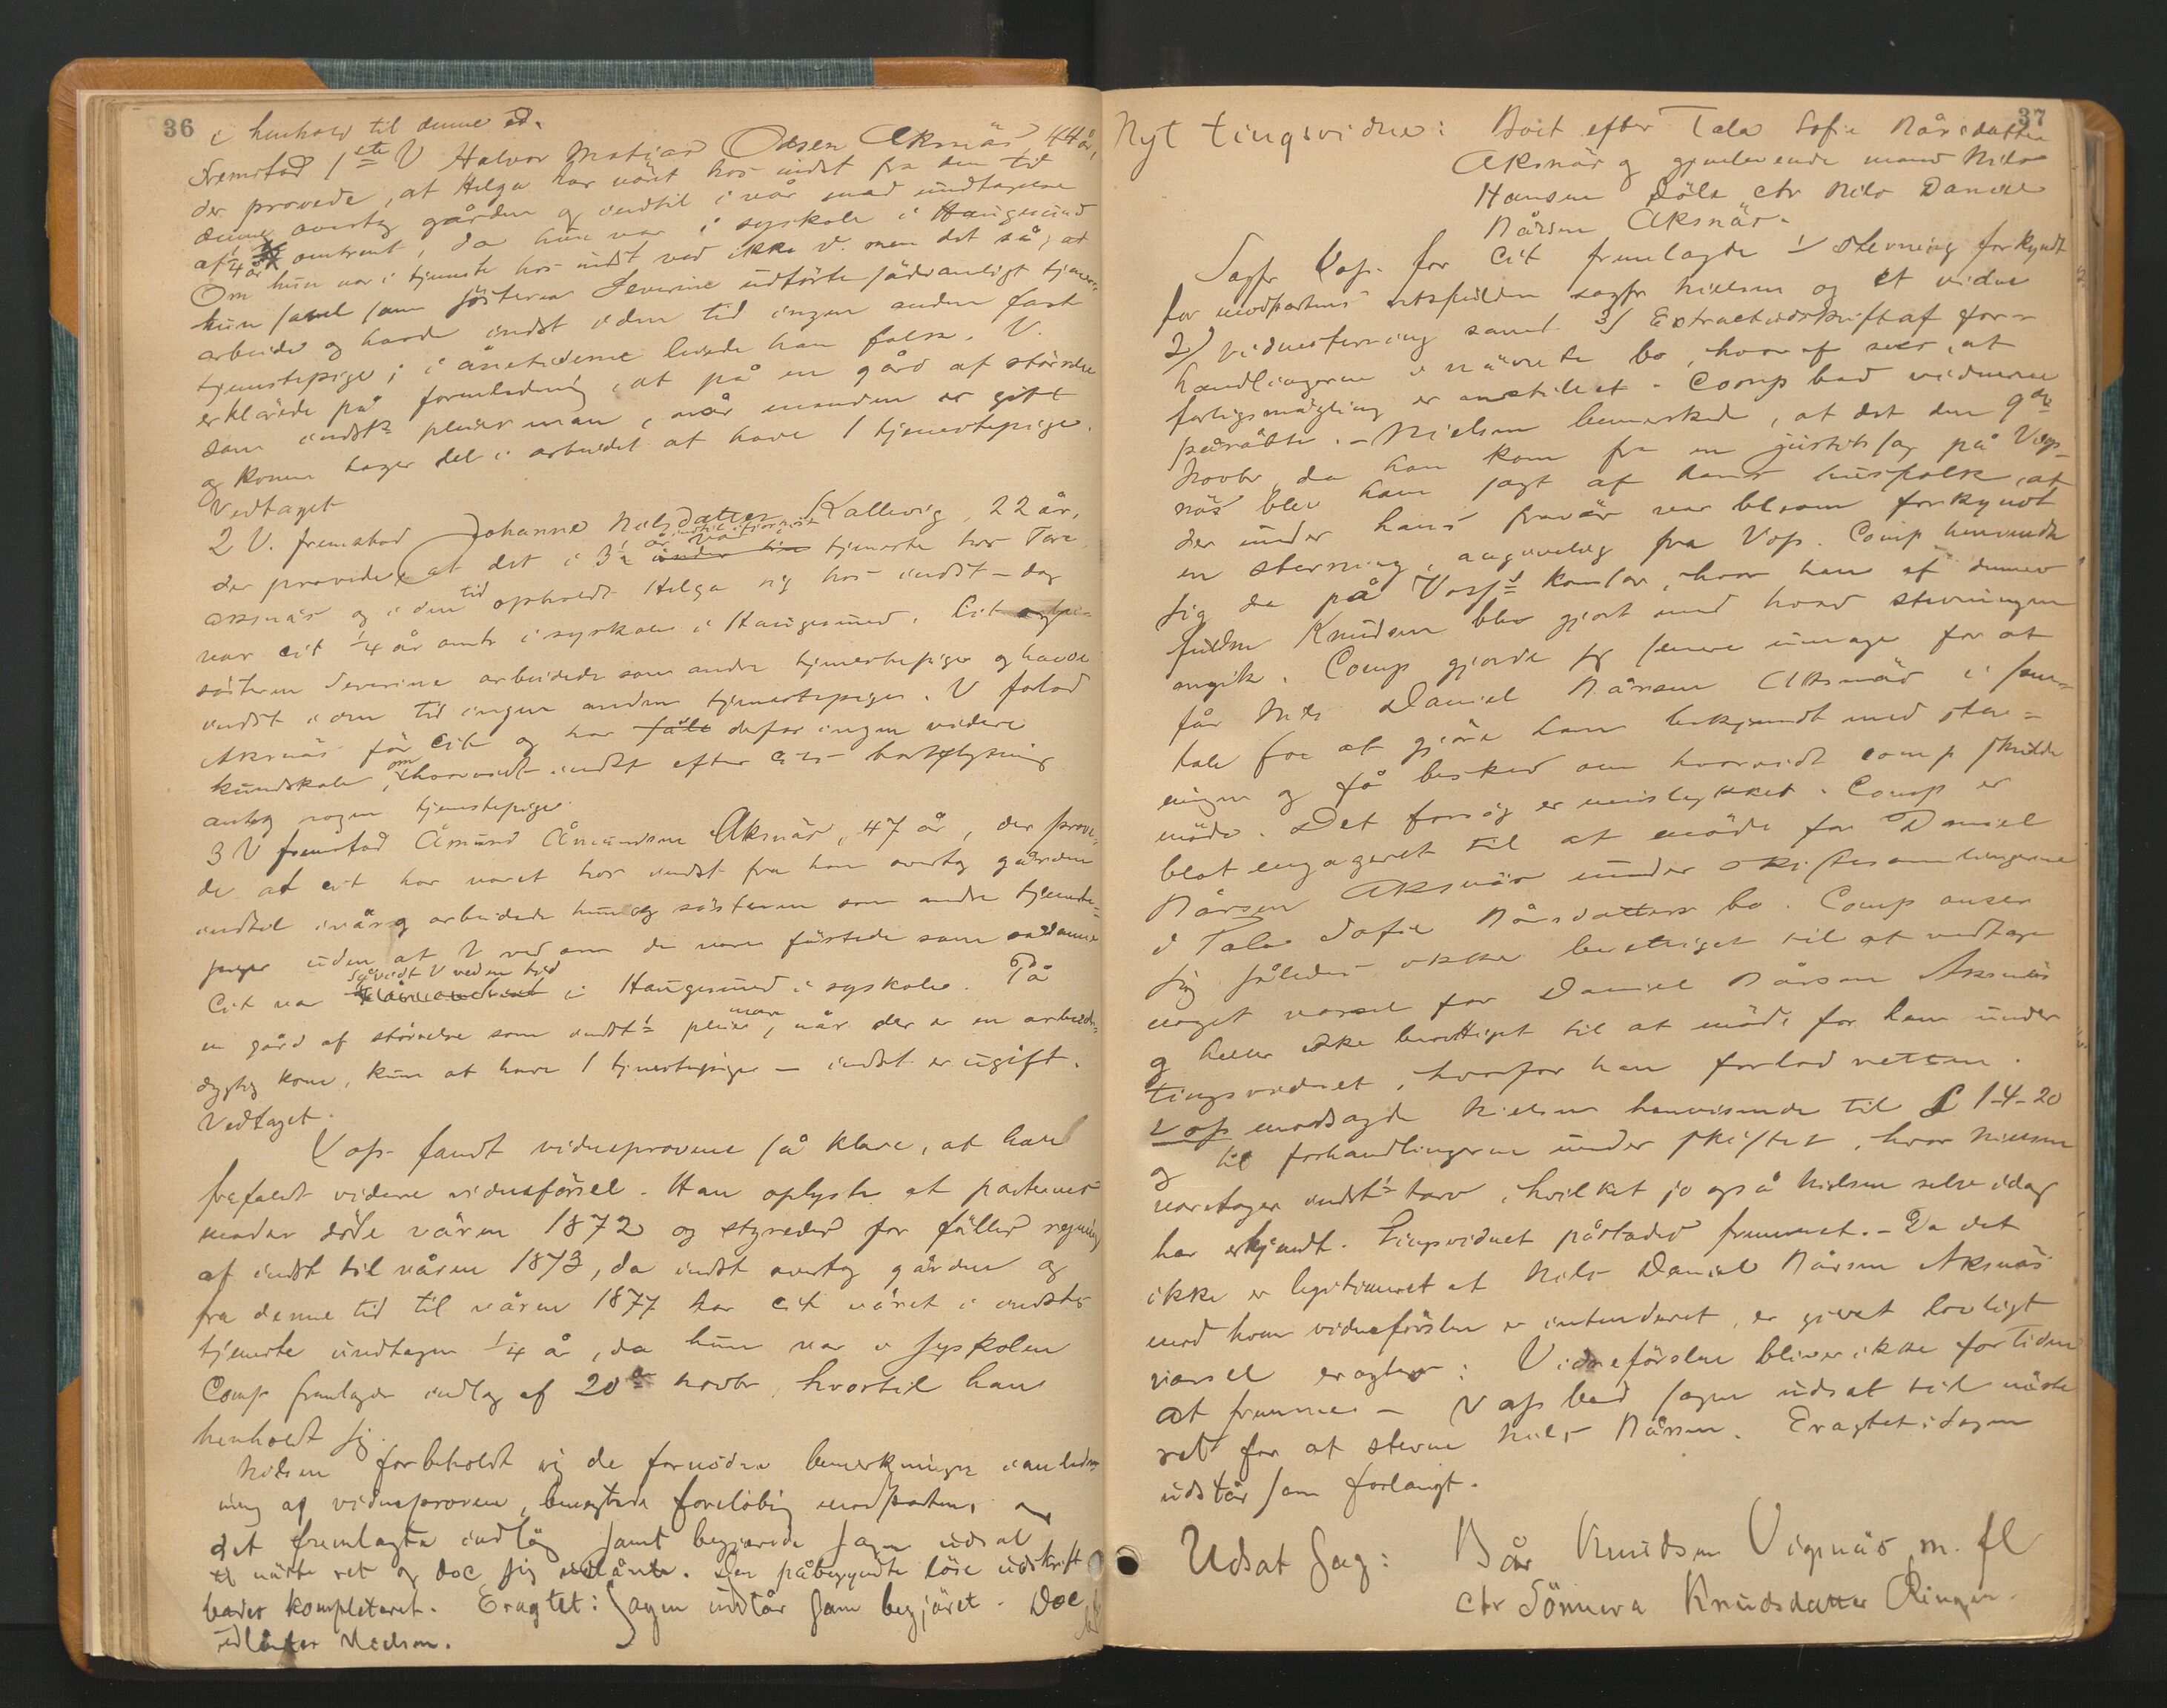 36
i henhold til denne ed.
Fremstod 1ste V Halvor Matias Odsen Aksnäs, 44 år,
der provede, at Helga har väret hos indst fra den tid
denne overtog gården og indtil i vår med undtagelse
af 1/4 år omtrent, da hun var i syskole i Haugesund
Om hun var i tjeneste hos indst ved ikke V. men det så, at
hun savel som søsteren Severine udførte sädvanligt tjener
arbeide og havde indst i den tid ingen anden fast
tjenestepige; i ånetiderne leiede han folk. V.
erklärede på foranledning, at på en gård af størrelse
som indsts pleier man, når manden er gift
og konen tager del i arbeidet at have 1 tjenestepige.
Vedtaget
2 V. fremstod Johanne Nilsdatter Kallevig, 22 år,
der provede, at det i 3½ år indtil ifjor høst var tjeneste hos Tore
Aksnäs og i den tid opholdt Helga sig hos indst – dog
var cit 1/4 år omtr i syskole i Haugesund. Cit og
søsteren Severine arbeidede som andre tjenestepiger og havde
indst i den tid ingen anden tjenestepige. V forlod
Aksnäs før Cit og har derfor ingen videre
kundskab om, hvorvidt indst efter Cits
antog nogen tjenestepige.
3 V fremstod Åmund Åmundsen Aksnäs, 47 år, der prove-
de at cit har väret hos indst fra han overtog gården
indtil i vår og arbeidede hun og søsteren som andre tjeneste-
piger uden at V ved om de vare fästede som sådanne
Cit var såvidt V ved en tid i Haugesund i syskole. På
en gård af størrelse som indsts pleier man, når der er en arbeids-
dygtig kone, kun at have 1 tjenestepige – indst er ugift.
Vedtaget.
Vops fandt vidneprovene så klare, at han
frafaldt videre vidneførsel. Han oplyste at parternes
moder døde våren 1872 og styredes for fälles regning
af indst til våren 1873, da indst overtog gården og
fra denne tid til våren 1877 har cit väret i indsts
tjeneste undtagen 1/4 år, da hun var i syskolen
Comp fremlagde indlæg af 20de Novbr, hvortil han
henholdt sig.
Nielsen forbeholdt sig de fornødne bemerkninger i anled-
ning af vidneprovene, benegtede foreløbig modpartens og
det fremlagte indläg samt begjærede sagen udsat
til näste ret og doc. sig udlånte. Den påbegyndte löse udskrift
bades kompletteret. Eragtet: Sagen udstår som begjäret. Doc
udlånes Nielsen.
37
Nyt tingsvidne: Boet efter Tala Sofie Bårsdatter
Aksnäs og gjenlevende mand Nils
Hansen Döle ctr Nils Daniel
Bårsen Aksnäs.
Sagfr Vops. for Cit fremlagde 1/ Stevning forkyndt
for modpartens sagfr Nielsen og et vidne
2/ Vidnestevning samt 3/ Extractudskrift af for-
handlingerne i nävnte bo, hvoraf sees, at
forligsmägling er anstillet. Comp bad vidnerne
påråbte. – Nielsen bemerkede, at det den 9de
Novbr, da han kom fra en justitssag på Vigs-
näs blev ham sagt af hans husfolk, at
der under hans fravär var bleven forkyndt
en stevning, angivelig fra Vops. Comp henvendte
sig da på Vopss kontor, hvor han af dennes
fuldm Knudsen blev gjort med hvad stevningen
angik. Comp gjorde sig senere umage for at
få Nils Daniel Bårsen Aksnäs i sam-
tale for at gjöre ham bekjendt med stev-
ningen og få besked om hvorvidt comp skulde
møde. Det forsøg er mislykket. Comp er
blot engageret til at møde for Daniel
Bårsen Aksnäs under skiftesamlingerne
i Tala Sofie Bårsdatters bo. Comp anser
sig således ikke berettiget til at vedtage
noget varsel for Daniel Bårsen Aksnäs
og heller ikke berettiget til at møde for ham under
tingsvidnet, hvorfor han forlod retten.
Vops modsagde Nielsen henvisende til L 1-4-20
og til forhandlingerne under skiftet, hvor Nielsen
varetager indsts tarv, hvilket jo også Nielsen selv idag
har erkjendt. Tingsvidnet påstodes fremmet. – Da det
ikke er legitimeret at Nils Daniel Bårsen Aksnäs
mod hvem vidneførslen er intenderet, er givet lovligt
varsel eragtes: Vidneførslen bliver ikke for tiden
at fremme – Vops bad sagen udsat til näste
ret for at stevne Nils Bårsen. Eragtet: Sagen
udstår som forlangt.
Udsat Sag: Bår Knudsen Vignäs m. fl
ctr Sönneva Knudsdatter Ringen.